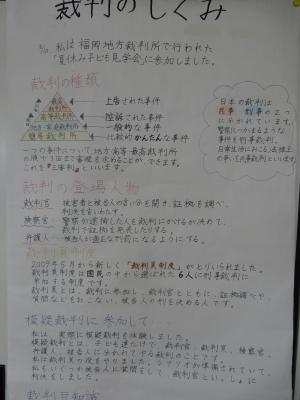 裁判のしくみ
私は福岡地方裁判所で行われた
「夏休み子ども見学会」に参加しました。
裁判の種類
最高裁判所
上告された事件
高等裁判所
控訴された事件
地方裁判所
一般的な事件
簡易裁判所
比較的かんたんな事件
一つの事件について地方・高等・最高裁判所
の順で3回まで審理を求めることができます。
これを『三審制』といいます。
日本の裁判は
民事と刑事の2つ
に分かれています。
警察につかまるような
事件を刑事裁判、
日常生活におこる法律上
の争いを民事裁判といいます。
裁判の登場人物
裁判官
被害者と被告人の言い分を聞き、証拠を調べ、
判決を言いわたす。
検察官
警察の逮捕した人を裁判にかけるか決めて、
裁判で証拠を発表したりする。
弁護人
被告人が適正な刑罰になるようにする。
裁判員制度
2009年5月から新しく「裁判員制度」がとりいられました。
裁判員制度は国民の中から選ばれた6人に刑事裁判に
参加する制度です。
裁判員とは、裁判に参加し、裁判官とともに、証拠調べや
質問などもおこない、被告人の刑を決める人です。
模擬裁判に参加して
私は、実際に模擬裁判を体験しました。
模擬裁判とは、子ども達だけで、裁判官、裁判員、検察官、
弁護人、被告人に分かれてやる裁判のことです。
私は裁判員の役をやりました。シナリオが準備されていて、
私もいくつか被告人に質問をして、裁判官といっしょに
判決をしました。
裁判豆知識